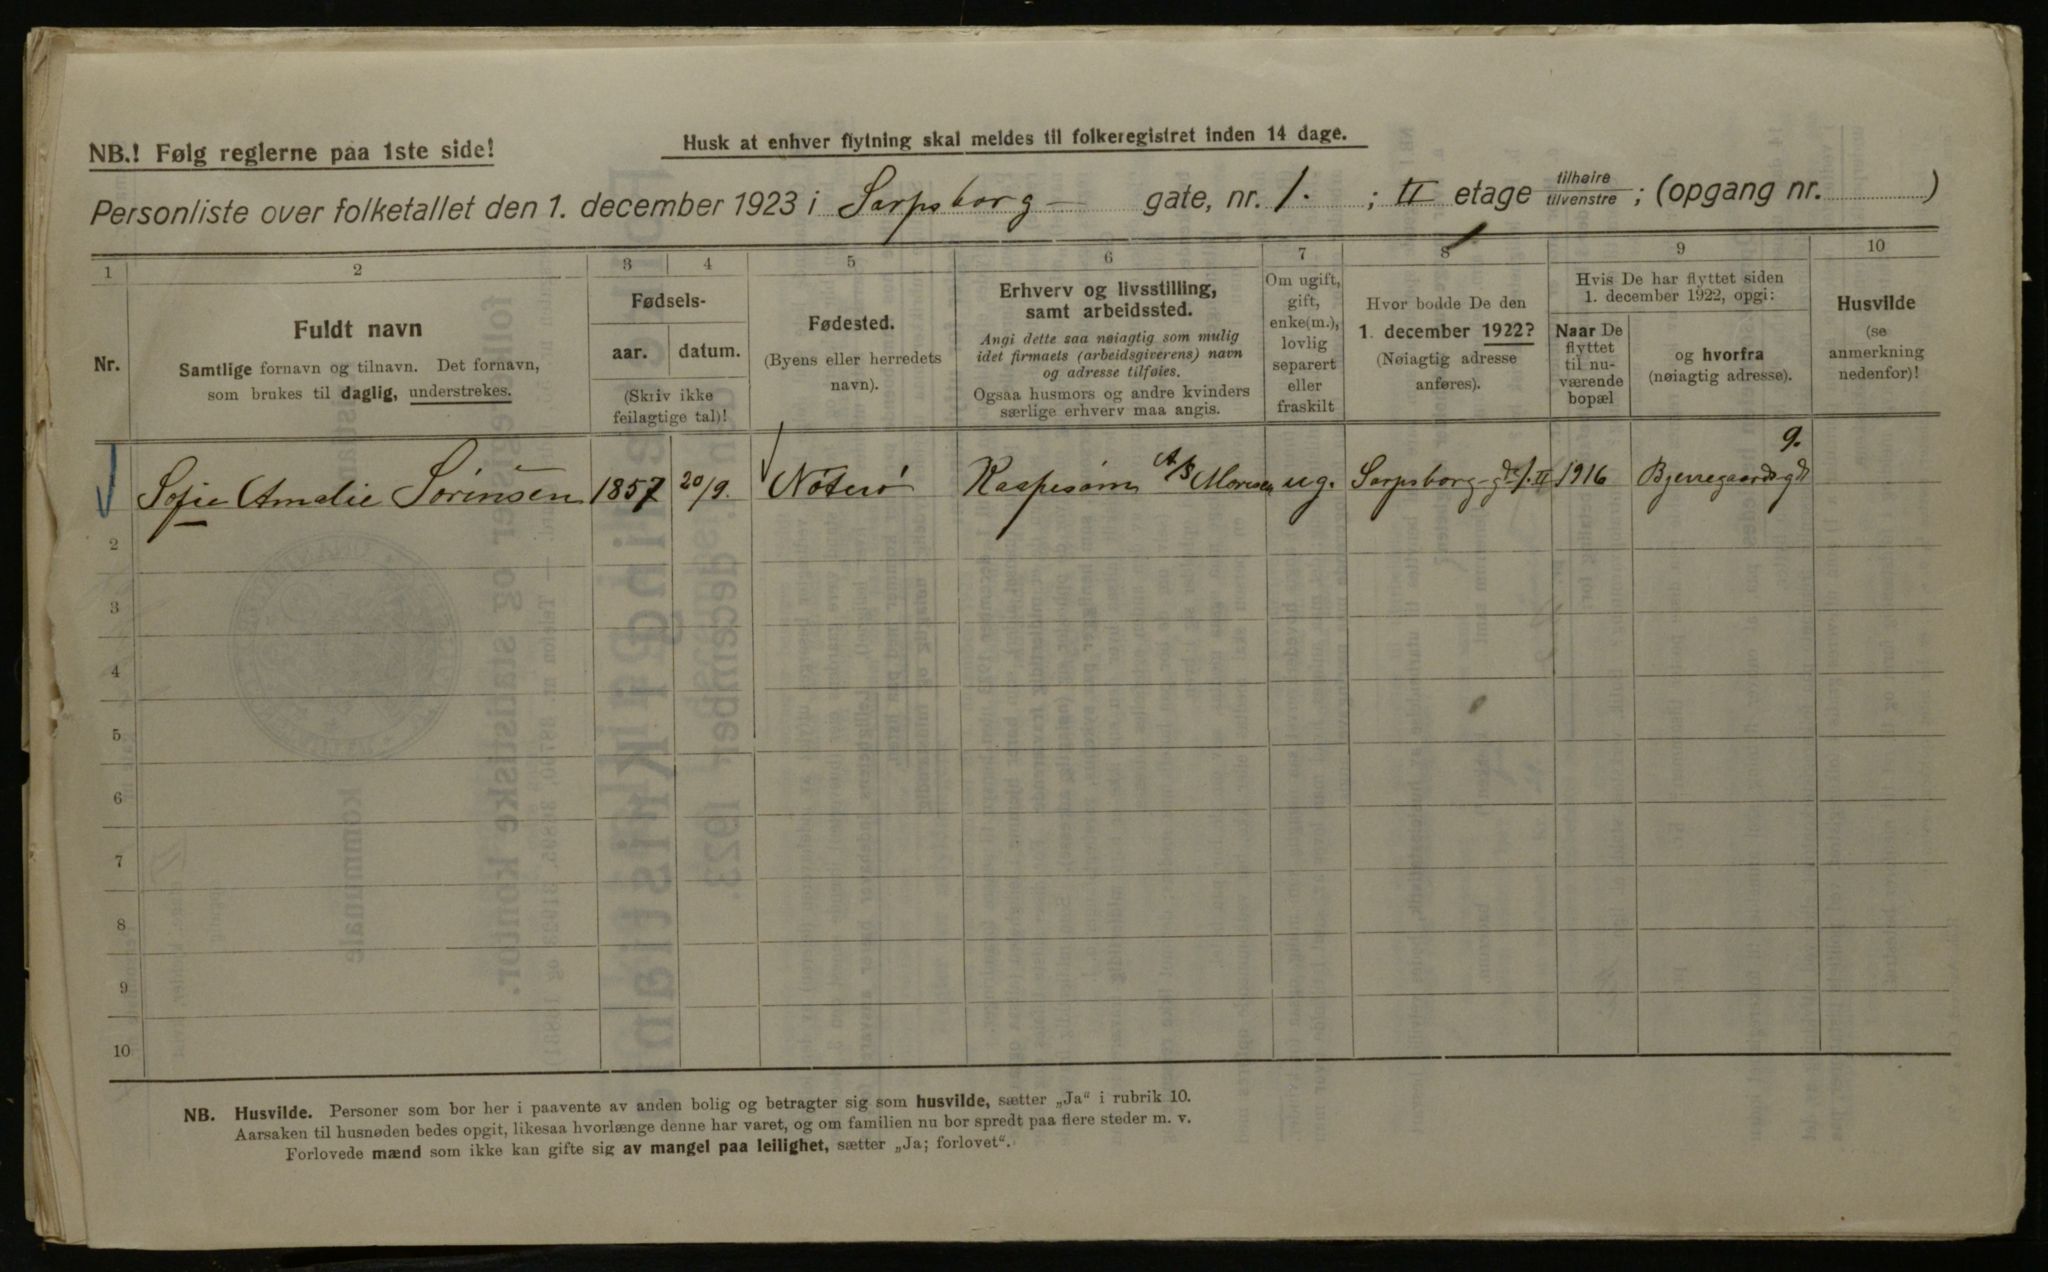 NB.! Følg reglerne paa 1ste side!
Husk at enhver flytning skal meldes til folkeregistret inden 14 dage.
Personliste over folketallet den 1. december 1923 i Sarpsborg- gate, nr. 1. ; II etage tilhøire tilvenstre ; (opgang nr. )
1 2 3 4 5 6 7 8 9 10
Nr.
Fuldt navn
Samtlige fornavn og tilnavn. Det fornavn,
som brukes til daglig, understrekes.
Fødsels-
aar. datum.
(Skriv ikke
feilagtige tal)!
Fødested.
(Byens eller herredets
navn).
Erhverv og livsstilling,
samt arbeidssted.
Angi dette saa nøiagtig som mulig
idet firmaets (arbeidsgiverens) navn
og adresse tilføies.
Ogsaa husmors og andre kvinders
særlige erhverv maa angis.
Om ugift,
gift,
enke(m.),
lovlig
separert
eller
fraskilt
Hvor bodde De den
1. december 1922?
(Nøiagtig adresse
anføres).
Hvis De har flyttet siden
1. december 1922, opgi:
Naar De
flyttet
til nu-
værende
bopæl
og hvorfra
(nøiagtig adresse).
Husvilde
(se
anmerkning
nedenfor)!
Sofie Amalie Sørinsen 1857 20/9. Nøterø A/S ug. Sarpsborg-gt 1. II 1916 Bjerregaardsgt 9.
2
3
4
5
6
7
8
9
10
NB. Husvilde. Personer som bor her i paavente av anden bolig og betragter sig som husvilde, sætter „Ja“ i rubrik 10.
Aarsaken til husnøden bedes opgit, likesaa hvorlænge denne har varet, og om familien nu bor spredt paa flere steder m. v.
Forlovede mænd som ikke kan gifte sig av mangel paa leilighet, sætter „Ja; forlovet“.